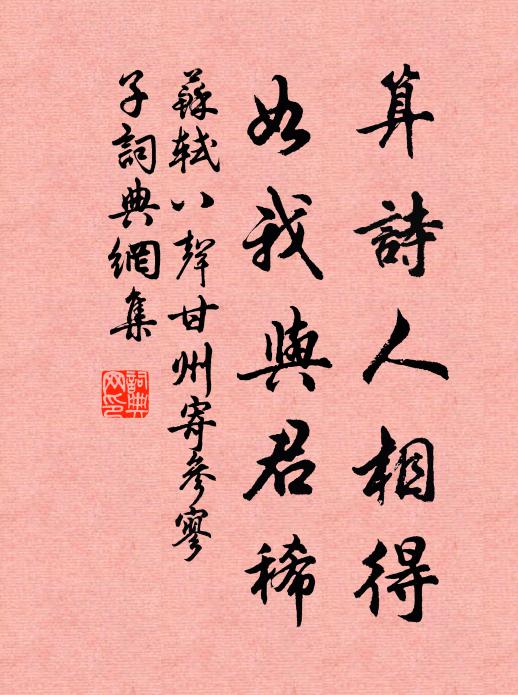 算詩人相得
如我與君稀
蘇軾八聲甘州寄參寥
子詞典網集
詞典
网印